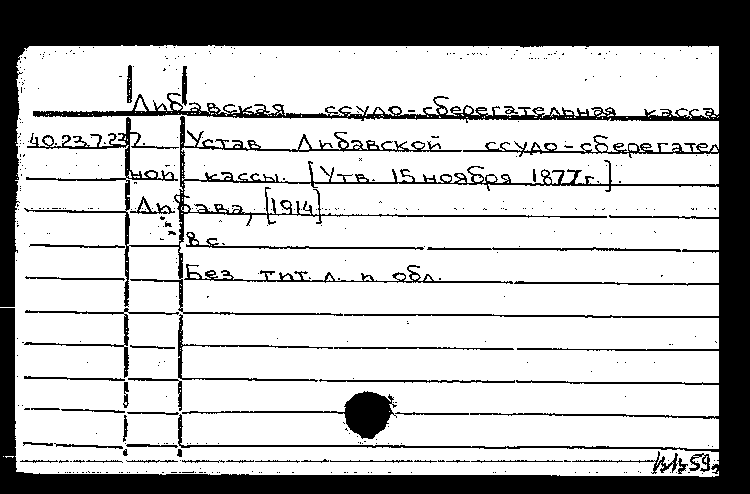 Либавская ссудо-сберегательная касса
40.23.7.237. Устав Либавской ссудо-сберегател
ной кассы. [Утв. 15 ноября 1877 г.].
Либава, [1914]
8 с.
Без тит. л. и обл.